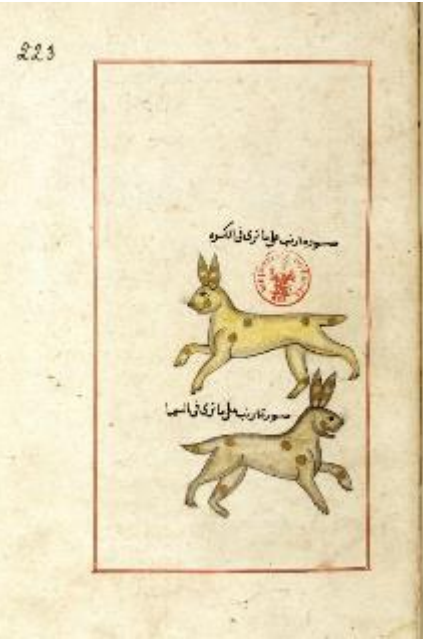 223
صورة ارنب على ما ترى فى الكره
صورة ارنب على ما ترى فى السما